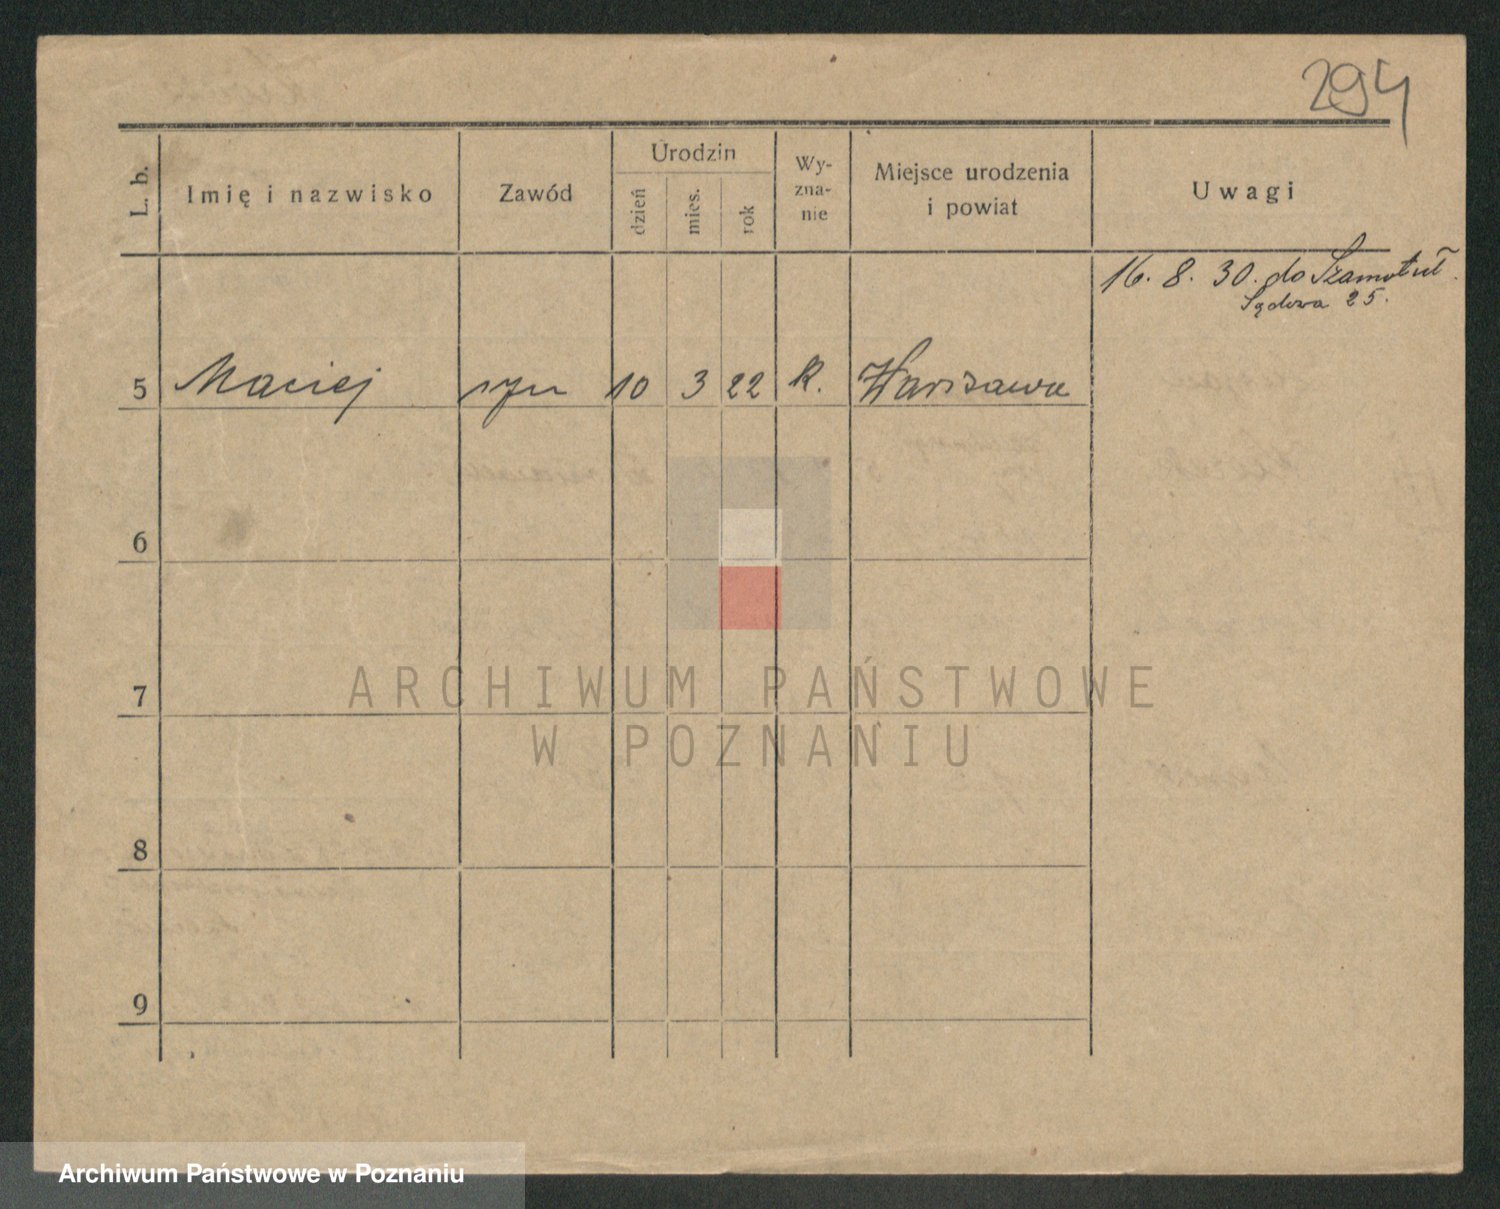 294
L. b.
Imię i nazwisko
Zawód
Urodzin
dzień
mies.
rok
Wy-
zna-
nie
Miejsce urodzenia
i powiat
Uwagi
16. 8. 30. do Szamotuł.
Sądowa 25.
5 Maciej syn 10 3 22 k. Warszawa
6
7
8
9
ARCHIWUM PAŃSTWOWE
W POZNANIU
Archiwum Państwowe w Poznaniu